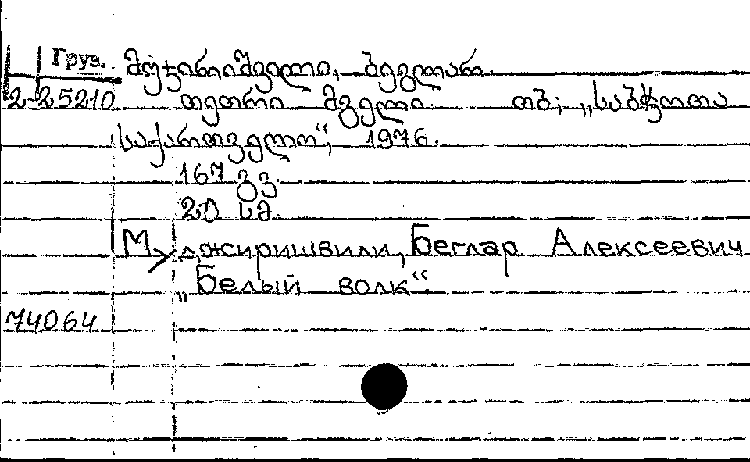 Груз. მჯირიშვილი, ბეგლარ
2-25210 თეთრი მგელი. თბ; „საბჭოთა
საქართველო“, 1976.
167 გვ.
20 სმ.
Мджиришвили, Беглар Алексеевич
„Белый волк“.
74064